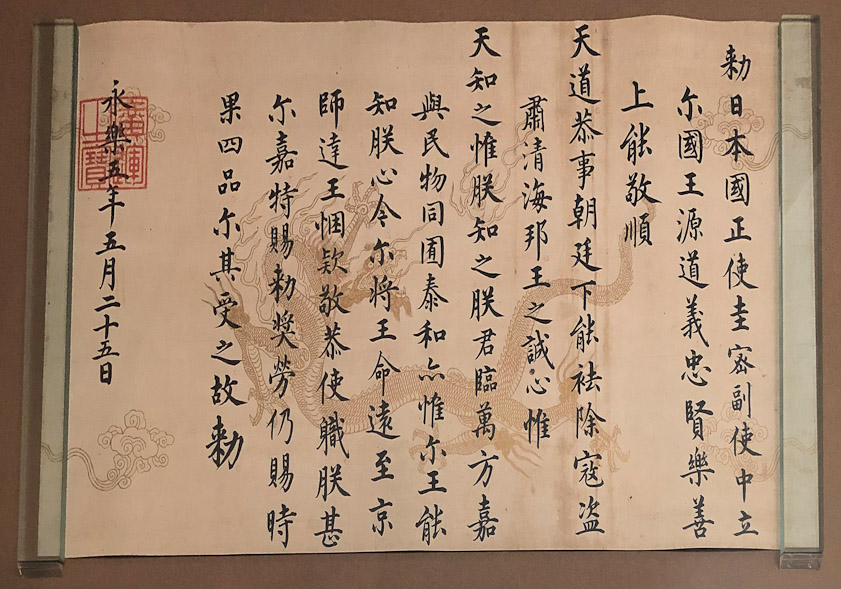 勅日本國正使圭密副使中立
尓國王源道義忠賢樂善
上能敬順
天道恭事朝廷下能袪除寇盗
肅清海邦王之誠心惟
天知之惟朕知之朕君臨萬方嘉
與民物同囿泰和亦惟尓王能
知朕心令尓將王命遠至京
師達王悃欵敬恭使職朕甚
尓嘉特賜勅奬勞仍賜時
果四品尓其受之故勅
永樂五年五月二十五日